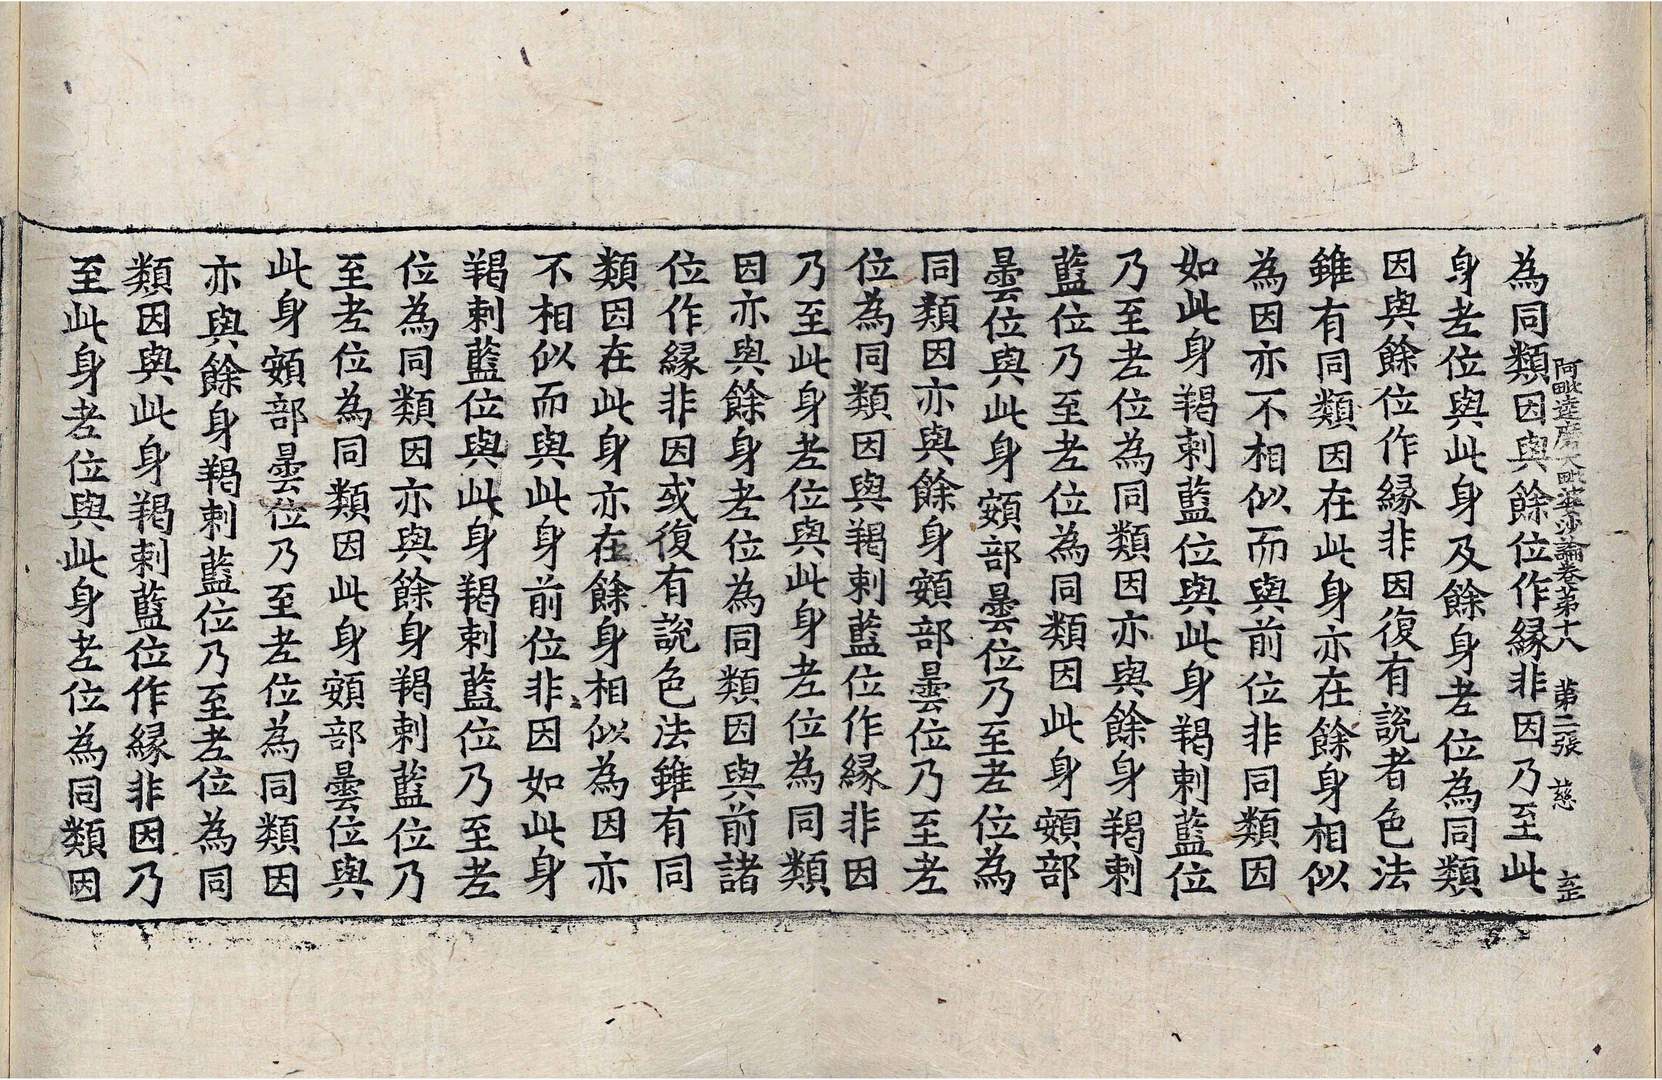 阿毗達磨大毗婆沙論卷第十八 第二張 慈
為同類因與餘位作縁非因乃至此
身老位與此身及餘身老位為同類
因與餘位作縁非因復有說者色法
雖有同類因在此身亦在餘身相似
為因亦不相似而與前位非同類因
如此身羯剌藍位與此身羯剌藍位
乃至老位為同類因亦與餘身羯剌
藍位乃至老位為同類因此身頞部
曇位與此身頞部曇位乃至老位為
同類因亦與餘身頞部曇位乃至老
位為同類因與羯剌藍位作縁非因
乃至此身老位與此身老位為同類
因亦與餘身老位為同類因與前諸
位作縁非因或復有說色法雖有同
類因在此身亦在餘身相似為因亦
不相似而與此身前位非因如此身
羯剌藍位與此身羯剌藍位乃至老
位為同類因亦與餘身羯剌藍位乃
至老位為同類因此身頞部曇位與
此身頞部曇位乃至老位為同類因
亦與餘身羯剌藍位乃至老位為同
類因與此身羯剌藍位作縁非因乃
至此身老位與此身老位為同類因